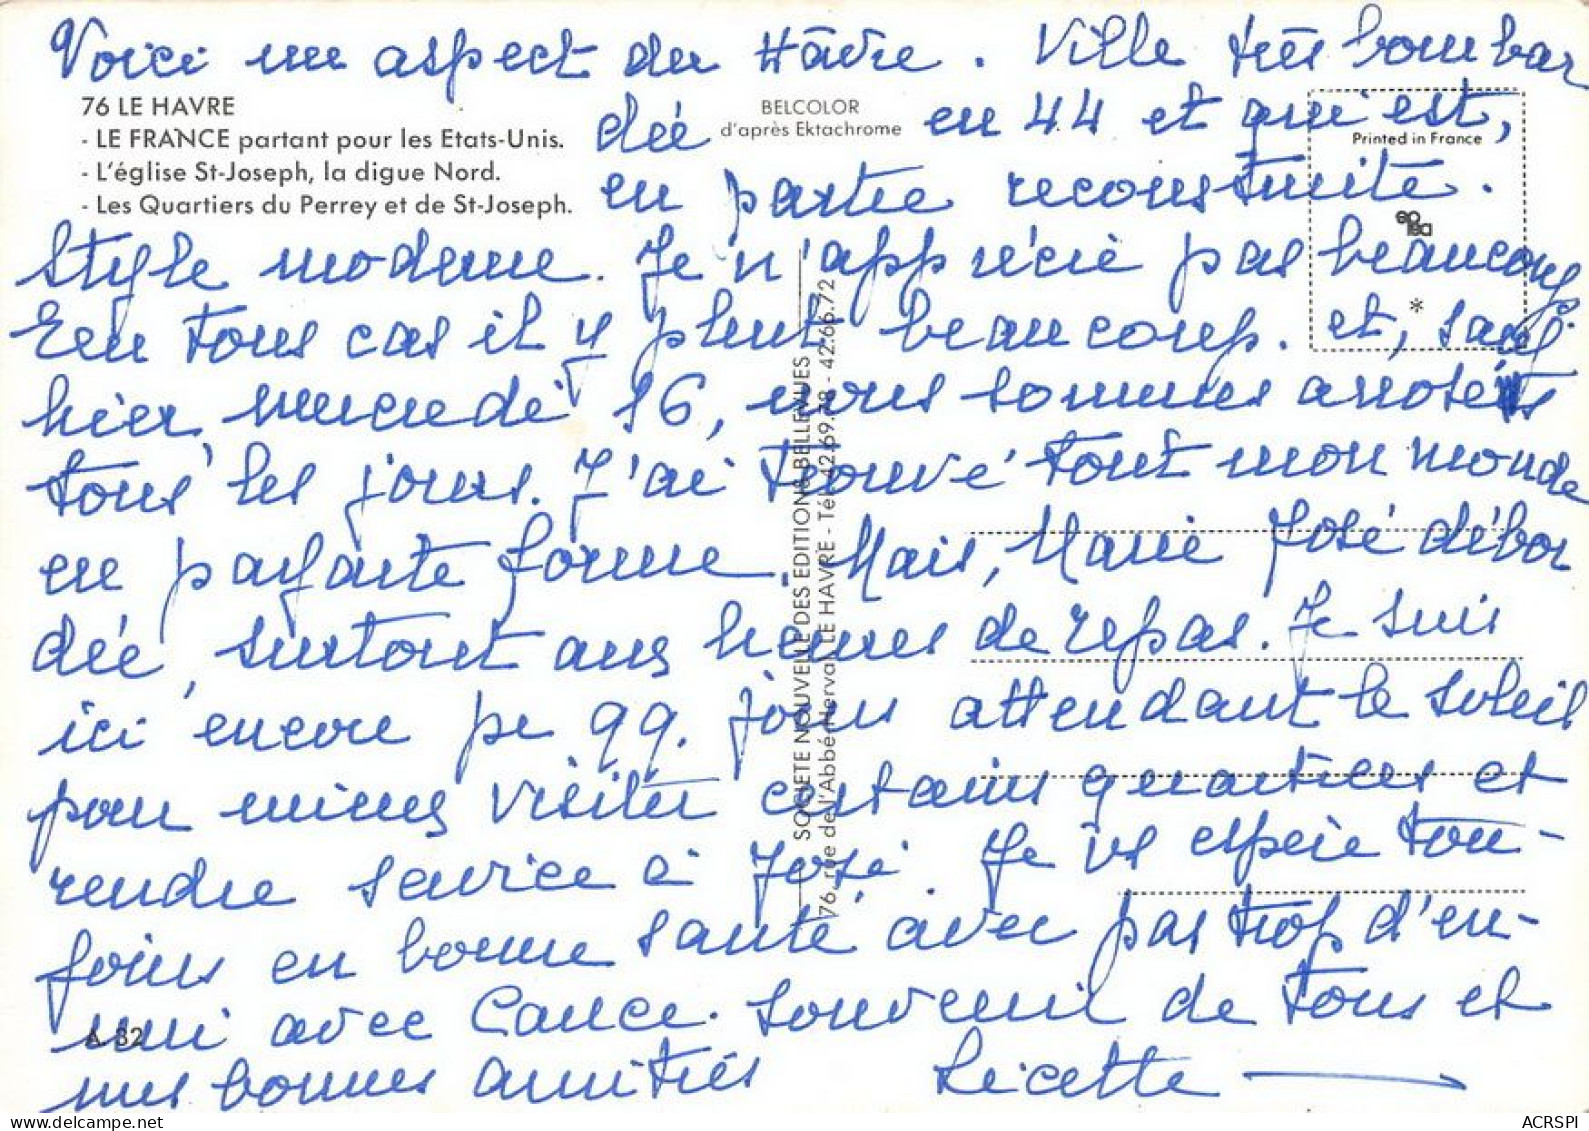 Voici un aspect du Hâvre. Ville très bombar
76 LE HAVRE
- LE FRANCE partant pour les Etats-Unis.
- L'église St-Joseph, la digue Nord.
- Les Quartiers du Perrey et de St-Joseph.
BELCOLOR
d'après Ektachrome
Printed in France
dée en 44 et qui est,
en partie reconstruite.
Style moderne. Je n'apprécie pas beaucoup.
En tous cas il y pleut beaucoup. et, sauf
hier, mercredi 16, nous sommes arrosés
tous les jours. J'ai trouvé tout mon monde
en parfaite forme. Mais, Marie José débor
dée, surtout aux heures de repas. Je suis
ici encore pr qq. jours attendant le soleil
pour mieux visiter certains quartiers et
rendre service à José. Je vs espère tou-
jours en bonne santé avec pas trop d'en-
nui avec Cance. Souvenir de tous et
mes bonnes amitiés Licette
A 32
SOCIETE NOUVELLE DES EDITIONS BELLEVUES
76, rue de l'Abbé-Herval LE HAVRE - Tél. 42.69.78 - 42.66.72
ACRSPI